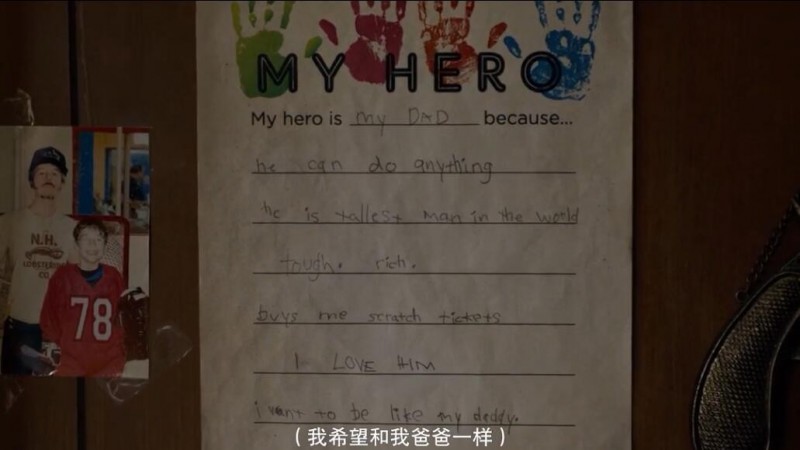 MY HERO
My hero is my DAD because...
he can do anything
he is tallest man in the world
tough. rich.
buys me scratch tickets
I LOVE HIM
i want to be like my daddy.
N.H.
LOBSTERING
CO.
78
（我希望和我爸爸一样）